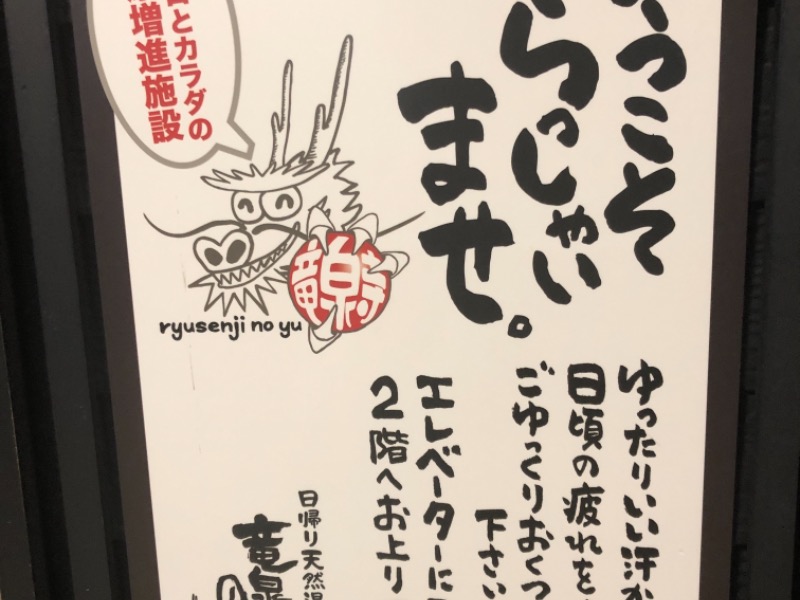 うこそ
らっしゃい
ませ。
とカラダの
増進施設
竜泉寺
ryusenji no yu
ゆったりいい汗か
日頃の疲れを
ごゆっくりおくつ
下さい
エレベーターに
2階へお上り
日帰り天然温
竜泉
の